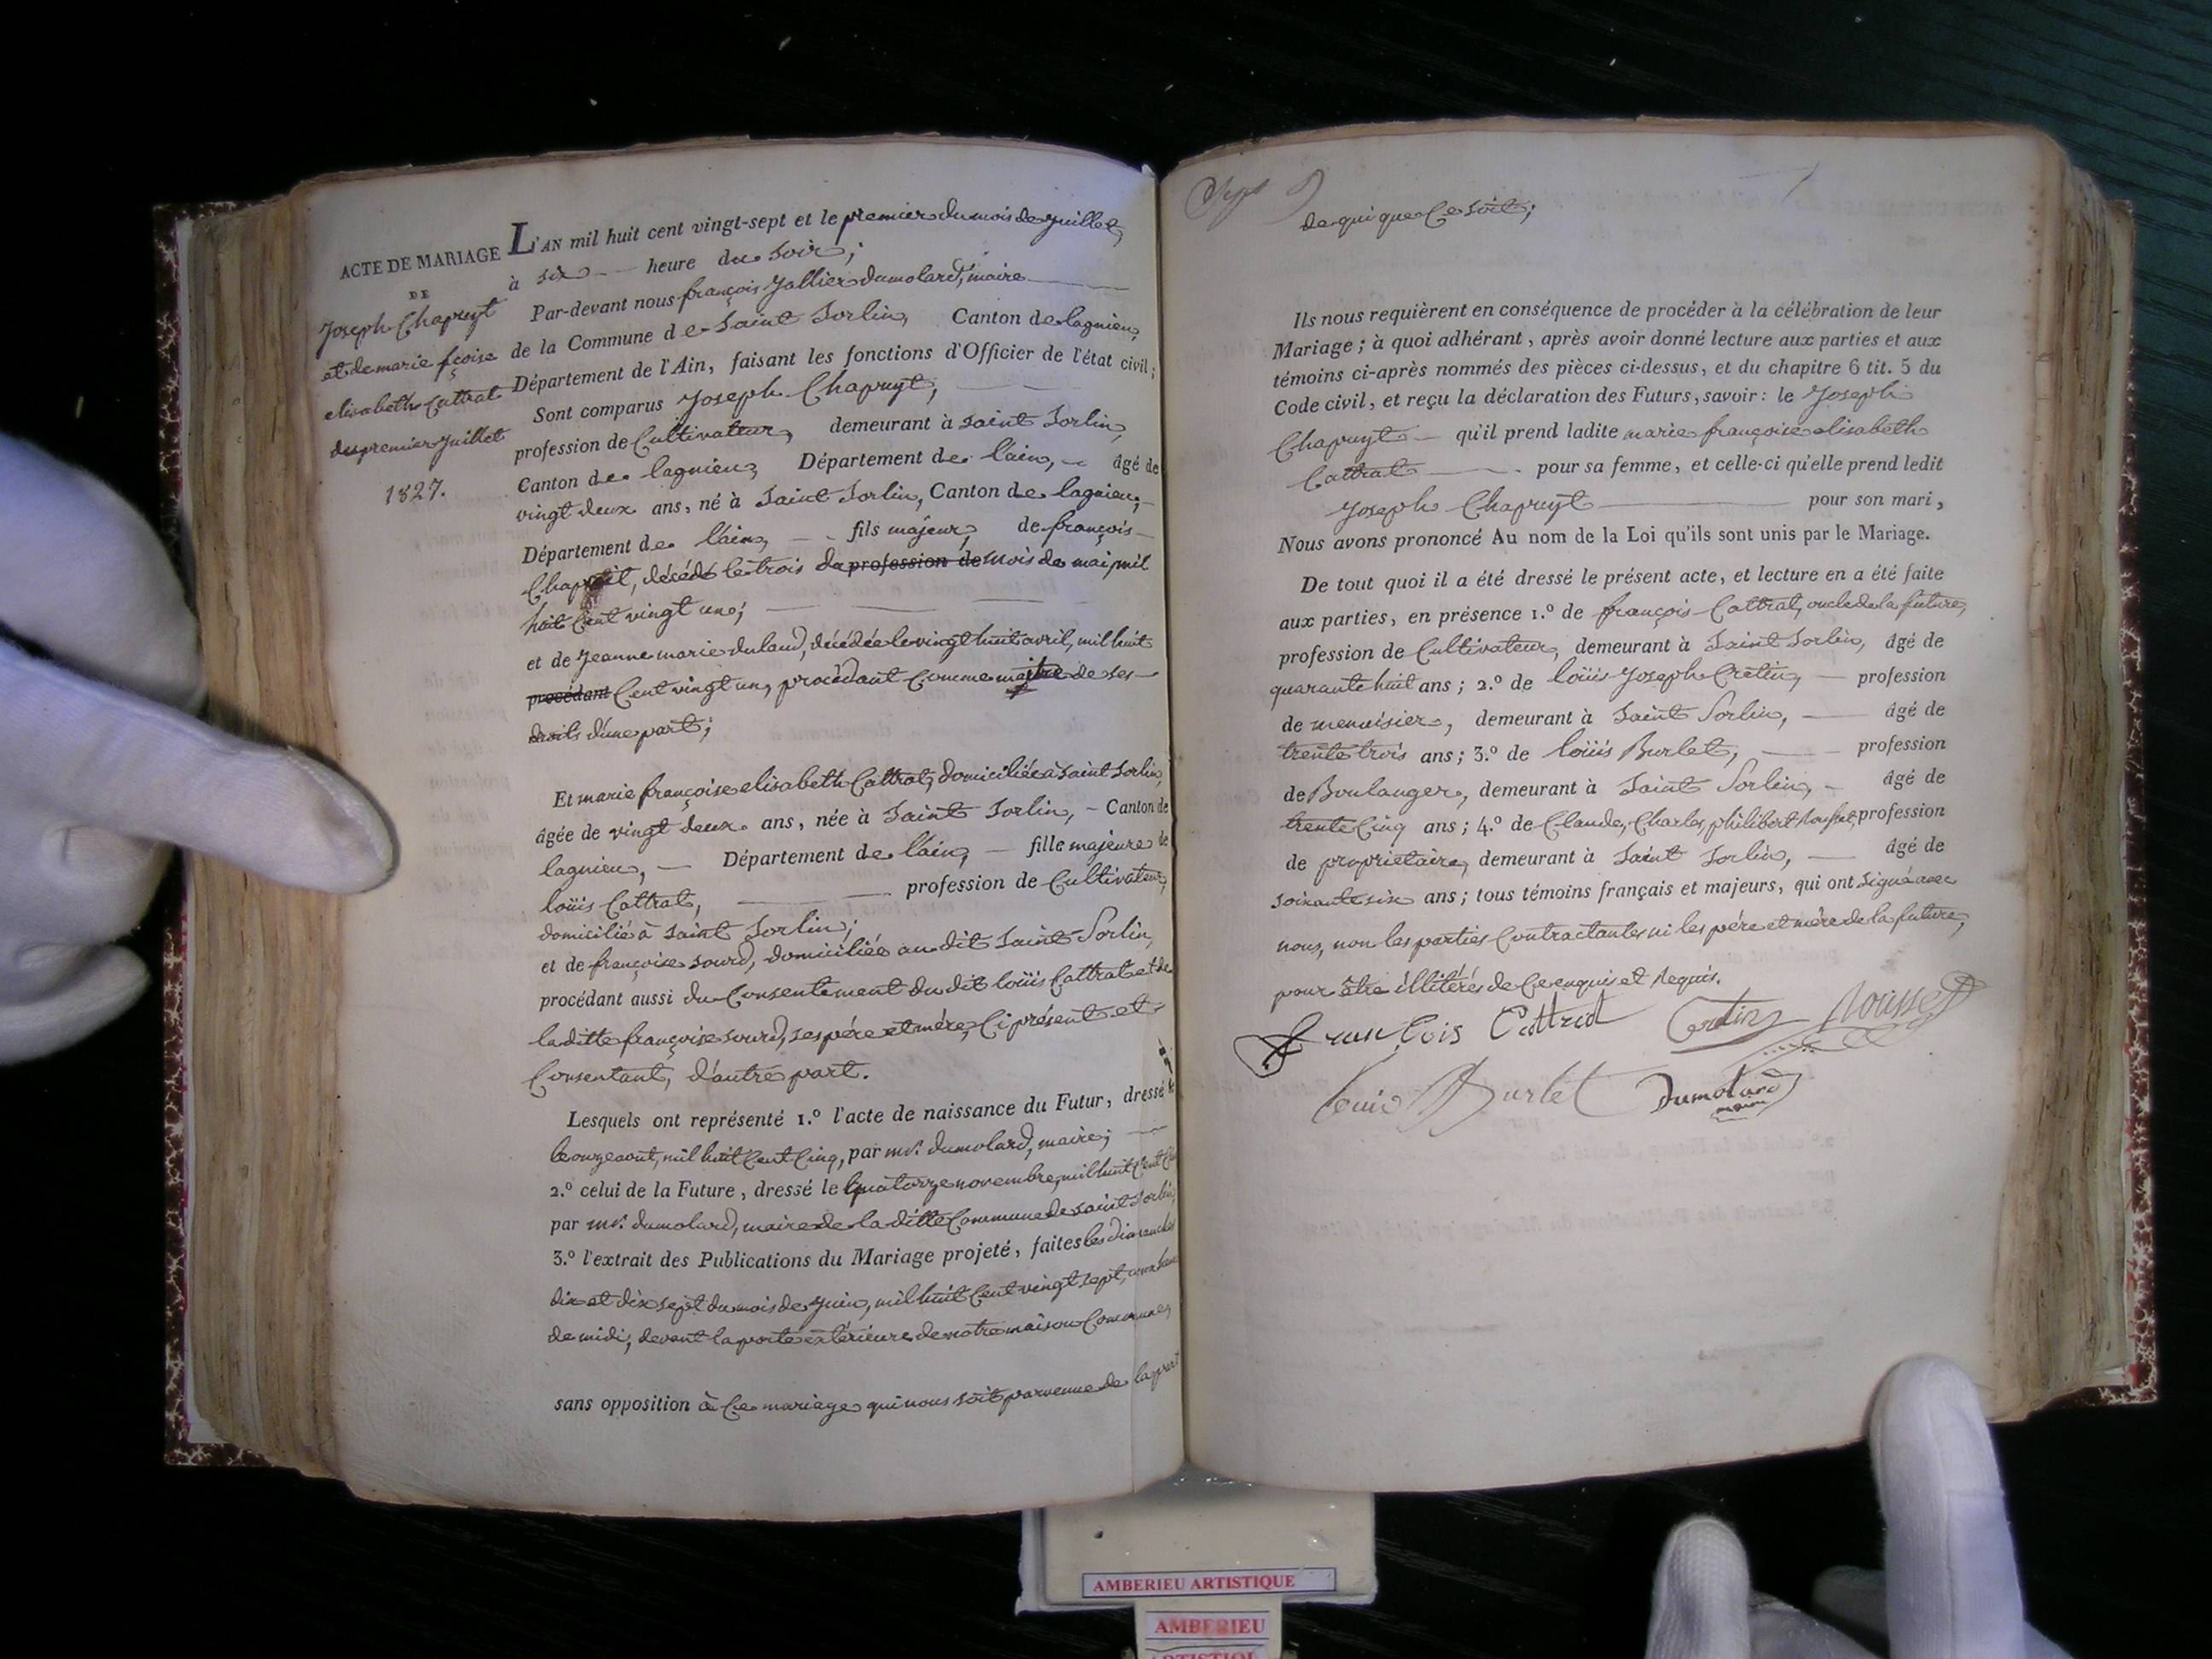 ACTE DE MARIAGE
DE
Joseph Chapuyt
et de marie fçoise
elisabeth Cattrat
du premier juillet
1827.
L'AN mil huit cent vingt-sept et le premier du mois de juillet,
à six heure du soir;
Par-devant nous françois Jallier dumolard, maire
de la Commune de Saint Sorlin, Canton de lagnieu,
Département de l'Ain, faisant les fonctions d'Officier de l'état civil;
Sont comparus Joseph Chapuyt,
profession de Cultivateur, demeurant à Saint Sorlin,
Canton de lagnieu, Département de l'ain, âgé de
vingt deux ans, né à Saint Sorlin, Canton de lagnieu,
Département de l'ain, fils majeur, de françois
décédé le trois du profession de mois de mai, mil
huit Cent vingt une;
et de Jeanne marie, décédée le vingt huit avril, mil huit
procédant Cent vingt un, procédant Comme maitre de ses
droits d'une part;
Et marie françoise elisabeth Cattrat, domiciliée à Saint Sorlin,
âgée de vingt deux ans, née à Saint Sorlin, Canton de
lagnieu, Département de l'ain, fille majeure de
loüis Cattrat, profession de Cultivateur,
domicilié à Saint Sorlin;
et de françoise sourd, domiciliée au dit Saint Sorlin,
procédant aussi du Consentement du dit loüis Cattrat et de
la ditte françoise sourd, ses pére et mére, Ci présent et
Consentant, d'autre part.
Lesquels ont représenté 1.º l'acte de naissance du Futur, dressé
le onze aout, mil huit Cent Cinq, par mr. dumolard, maire;
2.º celui de la Future, dressé le quatorze novembre, mil huit Cent
par mr. dumolard, maire de la ditte Commune de Saint Sorlin,
3.º l'extrait des Publications du Mariage projeté, faites les dimanches
dix et dix sept du mois de juin, mil huit Cent vingt sept,
de midi, devant la porte extérieure de notre maison Commune,
sans opposition à Ce mariage qui nous soit parvenue de la part
Sept
de qui que Ce soit;
Ils nous requièrent en conséquence de procéder à la célébration de leur
Mariage; à quoi adhérant, après avoir donné lecture aux parties et aux
témoins ci-après nommés des pièces ci-dessus, et du chapitre 6 tit. 5 du
Code civil, et reçu la déclaration des Futurs, savoir: le Joseph
Chapuyt qu'il prend ladite marie françoise elisabeth
Cattrat pour sa femme, et celle-ci qu'elle prend ledit
Joseph Chapuyt pour son mari,
Nous avons prononcé Au nom de la Loi qu'ils sont unis par le Mariage.
De tout quoi il a été dressé le présent acte, et lecture en a été faite
aux parties, en présence 1.º de françois Cattrat, oncle de la future,
profession de Cultivateur, demeurant à Saint Sorlin, âgé de
quarante huit ans; 2.º de loüis Joseph Cretin, profession
de menuisier, demeurant à Saint Sorlin, âgé de
trente trois ans; 3.º de loüis Burlet, profession
de Boulanger, demeurant à Saint Sorlin, âgé de
trente Cinq ans; 4.º de Claude, Charles, philibert Rousset, profession
de propriétaire, demeurant à Saint Sorlin, âgé de
soixante six ans; tous témoins français et majeurs, qui ont signé avec
nous, non les parties Contractantes ni les pére et mére de la future,
pour être illitérés de Ce enquis et Requis.
François Cattrat Cretin Rousset
Louis Burlet Dumolard
maire
AMBERIEU ARTISTIQUE
AMBERIEU
ARTISTIQUE